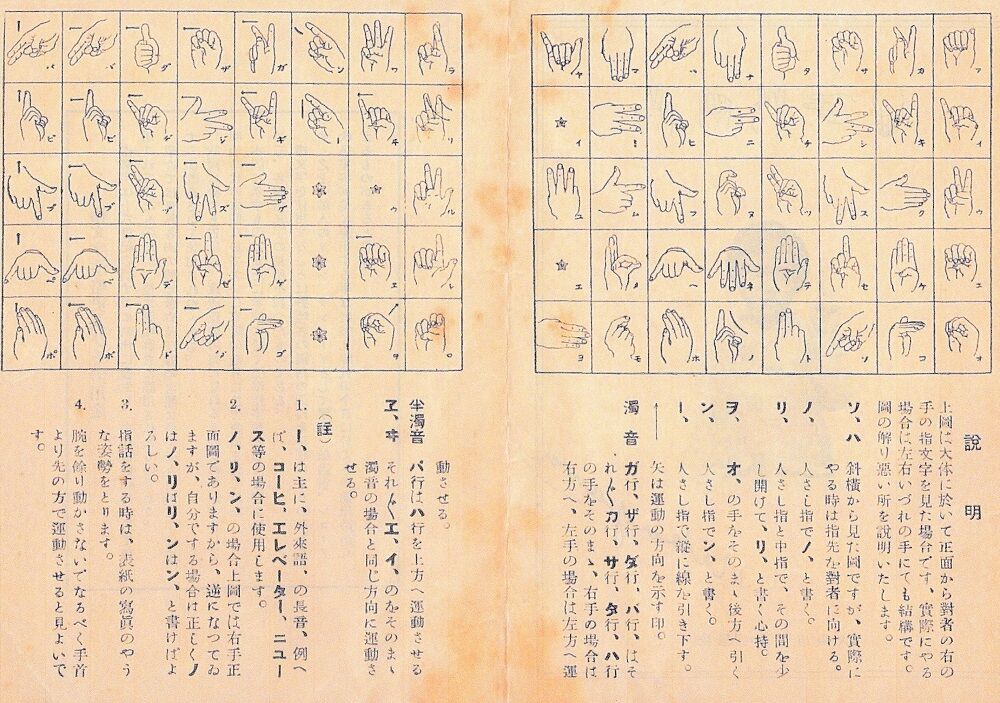 ア カ サ タ ナ ハ マ ヤ
イ キ シ チ ニ ヒ ミ イ
ウ ク ス ツ ヌ フ ム ユ
エ ケ セ テ ネ ヘ メ エ
オ コ ソ ト ノ ホ モ ヨ
ラ ワ ン ガ ザ ダ バ パ
リ ヰ ー ギ ジ ヂ ビ ピ
ル ウ グ ズ ヅ ブ プ
レ ヱ ゲ ゼ デ ベ ペ
ロ ヲ ゴ ゾ ド ボ ポ
說 明
上圖は大体に於いて正面から對者の右の
手の指文字を見た場合です、實際にやる
場合は左右いづれの手にても結構です。
圖の解り惡い所を說明いたします。
ソ、ハ 斜橫から見た圖ですが、實際に
やる時は指先を對者に向ける。
ノ、 人さし指でノ、と書く。
リ、 人さし指と中指で、その間を少
し開けて、リ、と書く心持。
ヲ、 オ、の手をそのまゝ後方へ引く
ン、 人さし指でン、と書く。
ー、 人さし指で縱に線を引き下す。
矢は運動の方向を示す印。
濁音 ガ行、ザ行、ダ行、バ行、はそ
れ〱カ行、サ行、タ行、ハ行
の手をそのまゝ、右手の場合は
右方へ、左手の場合は左方へ運
動させる。
半濁音 パ行はハ行を上方へ運動させる
ヱ、ヰ それ〱エ、イ、のをそのまゝ
濁音の場合と同じ方向に運動さ
せる。
(註)
1. ー、は主に、外來語、の長音、例へ
ば、コーヒ、エレベーター、ニュー
ス等の場合に使用します。
2. ノ、リ、ン、の場合上圖では右手正
面圖でありますから、逆になつてゐ
ますが、自分でする場合は正しくノ
はノ、リはリ、ンはン、と書けばよ
ろしい。
3. 指話をする時は、表紙の寫眞のやう
な姿勢をとります。
4. 腕を餘り動かさないでなるべく手首
より先の方で運動させると見よいで
す。